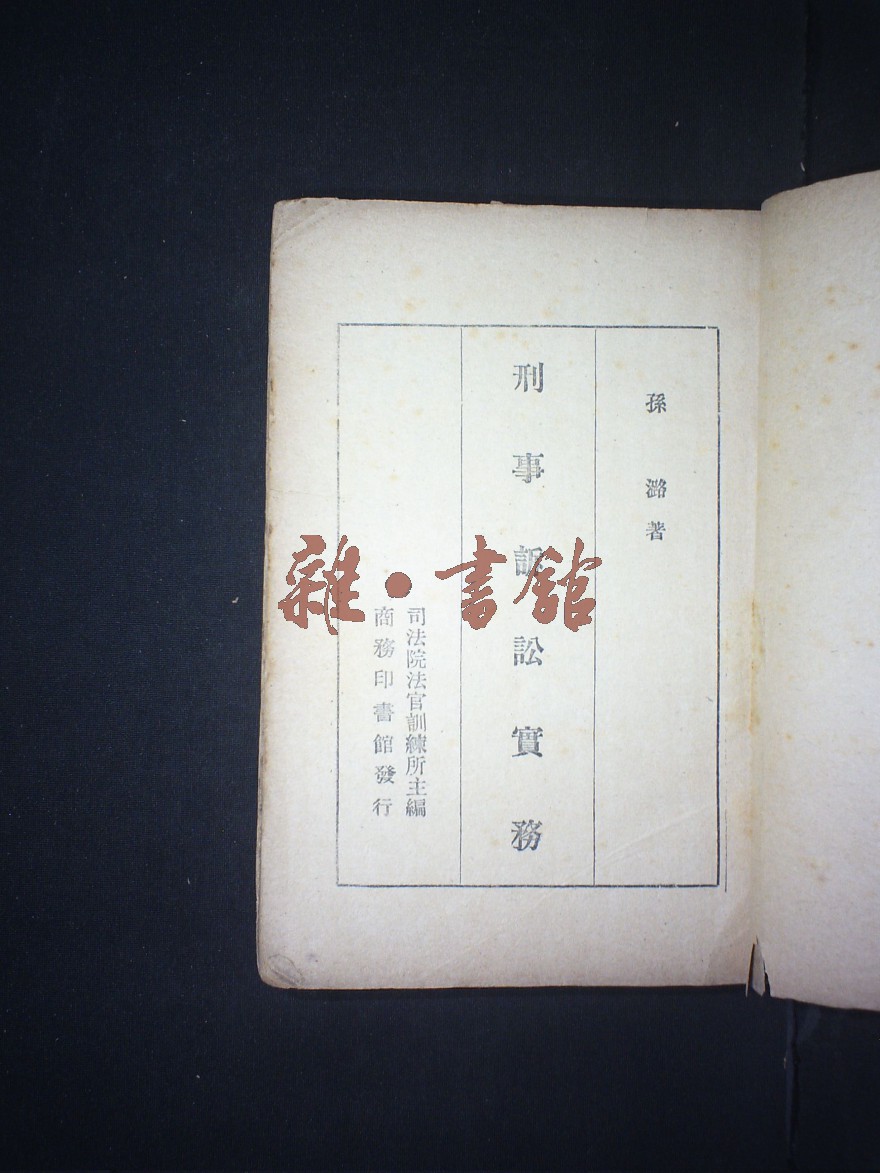 孫潞著
刑事訴訟實務
司法院法官訓練所主編
商務印書館發行
雜·書館